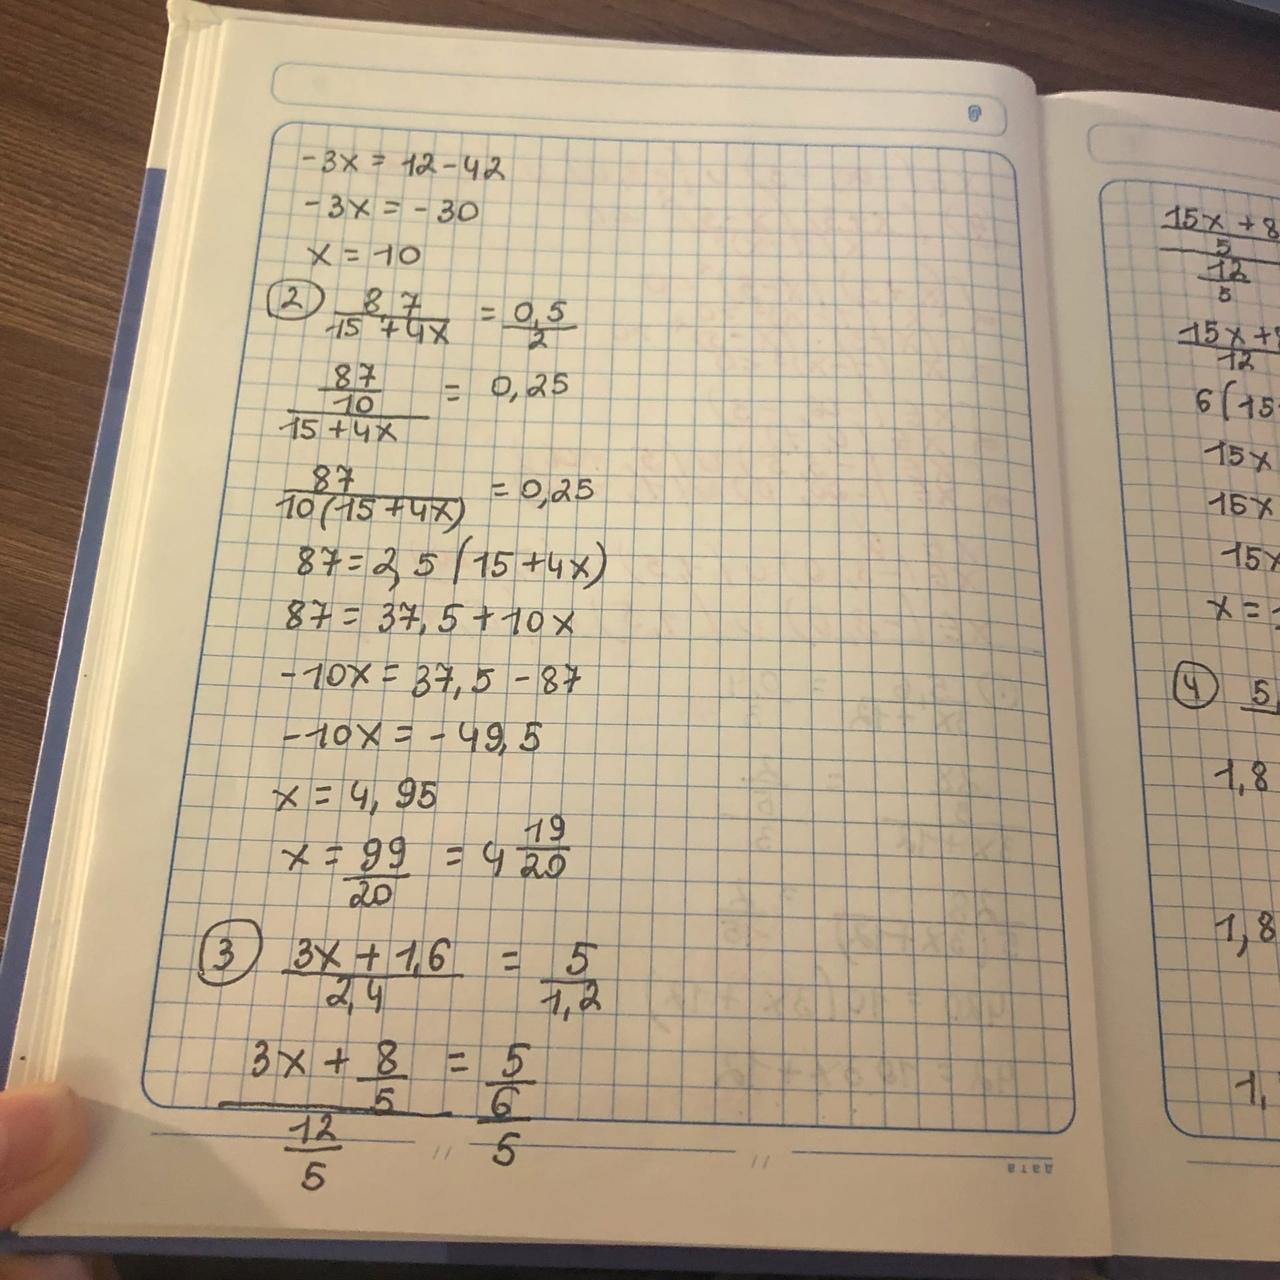 -3x = 12 - 42
-3x = -30
x = 10
② 8,7/(15 + 4x) = 0,5/2
(87/10)/(15 + 4x) = 0,25
87/(10(15 + 4x)) = 0,25
87 = 2,5 (15 + 4x)
87 = 37,5 + 10x
-10x = 37,5 - 87
-10x = -49,5
x = 4,95
x = 99/20 = 4 19/20
③ (3x + 1,6)/2,4 = 5/1,2
(3x + 8/5)/(12/5) = 5/(6/5)
дата
15x + 8
5
12
5
15x +
12
6(15
15x
15x
15x
x =
④ 5,
1,8
1,8
1,